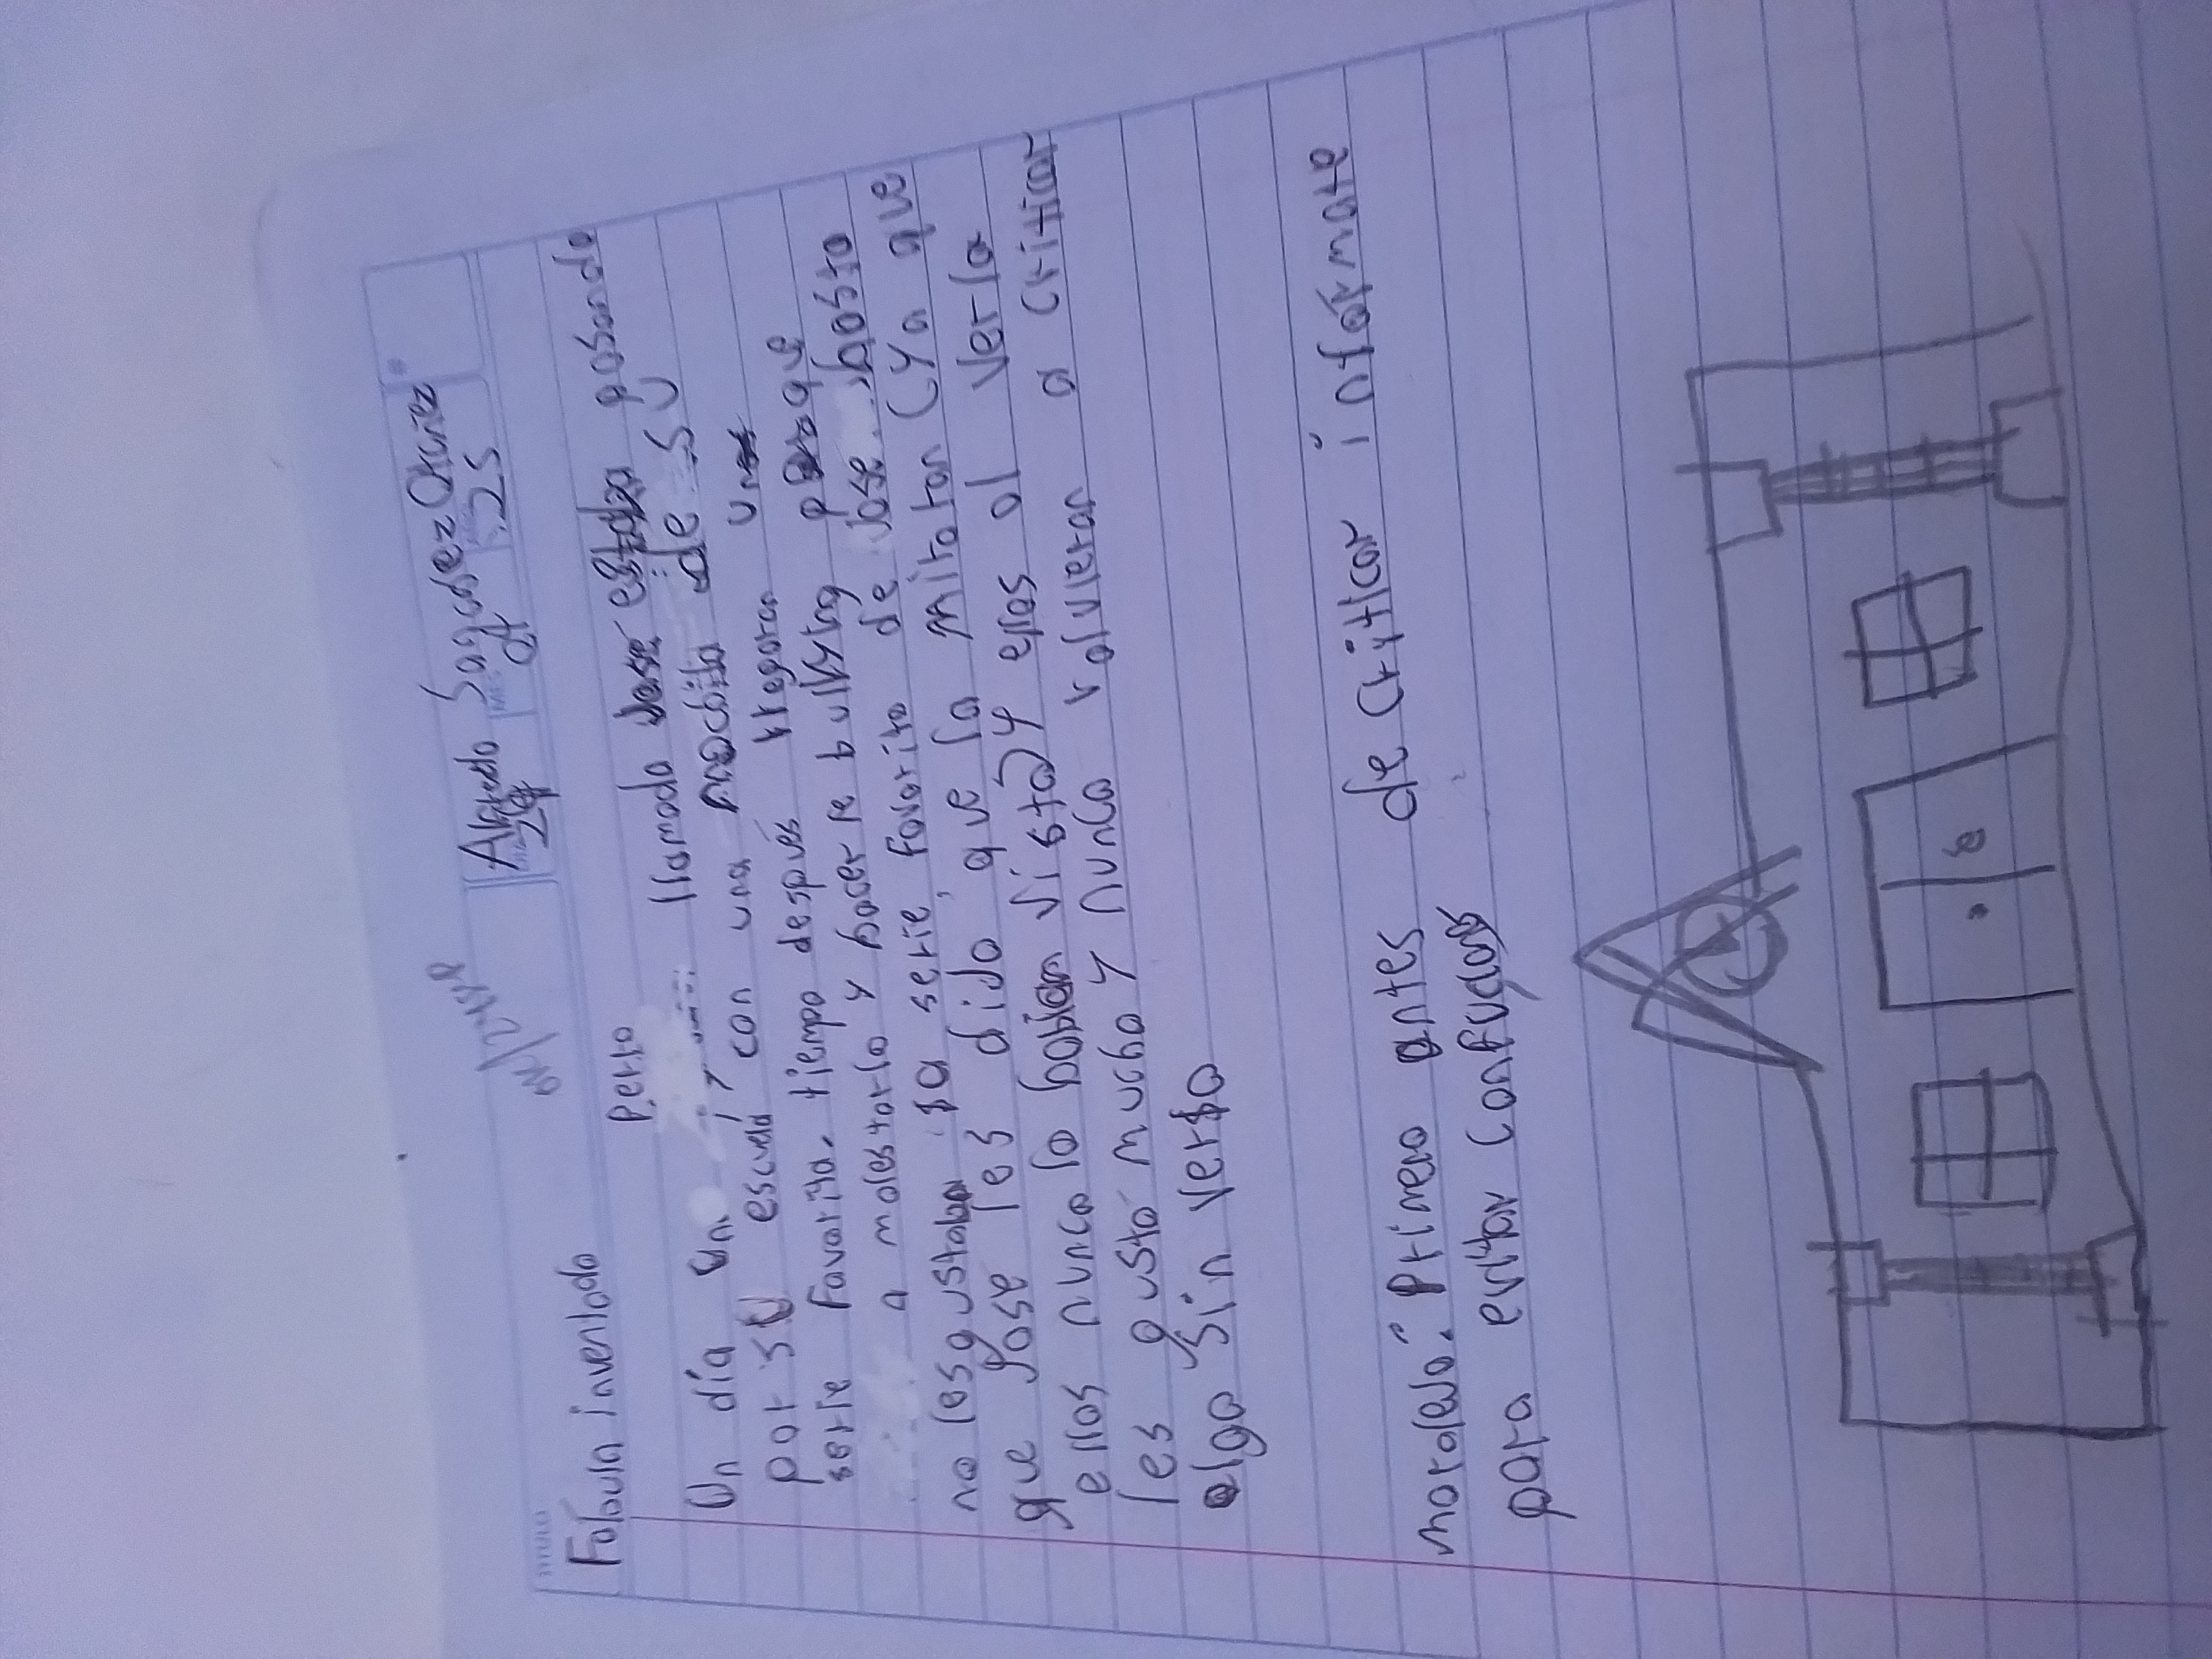 Alfredo Sazcosez Otañez
TITULO
29 01 25
Fábula inventada
Perro
Un día un llamado Jose estaba pasando
por su escuela con una mochila de su
serie favorita. tiempo despues llegaron un
a molestarlo y hacerle bullying porque
no les gustaba la serie favorita de Jose. hasta
que Jose les dijo que la miraran (Ya que
ellos nunca lo habian vista) y ellos al verla
les gusto mucho y nunca volvieron a criticar
algo sin verlo
moraleja: Primero antes de criticar informate
para evitar confuciones